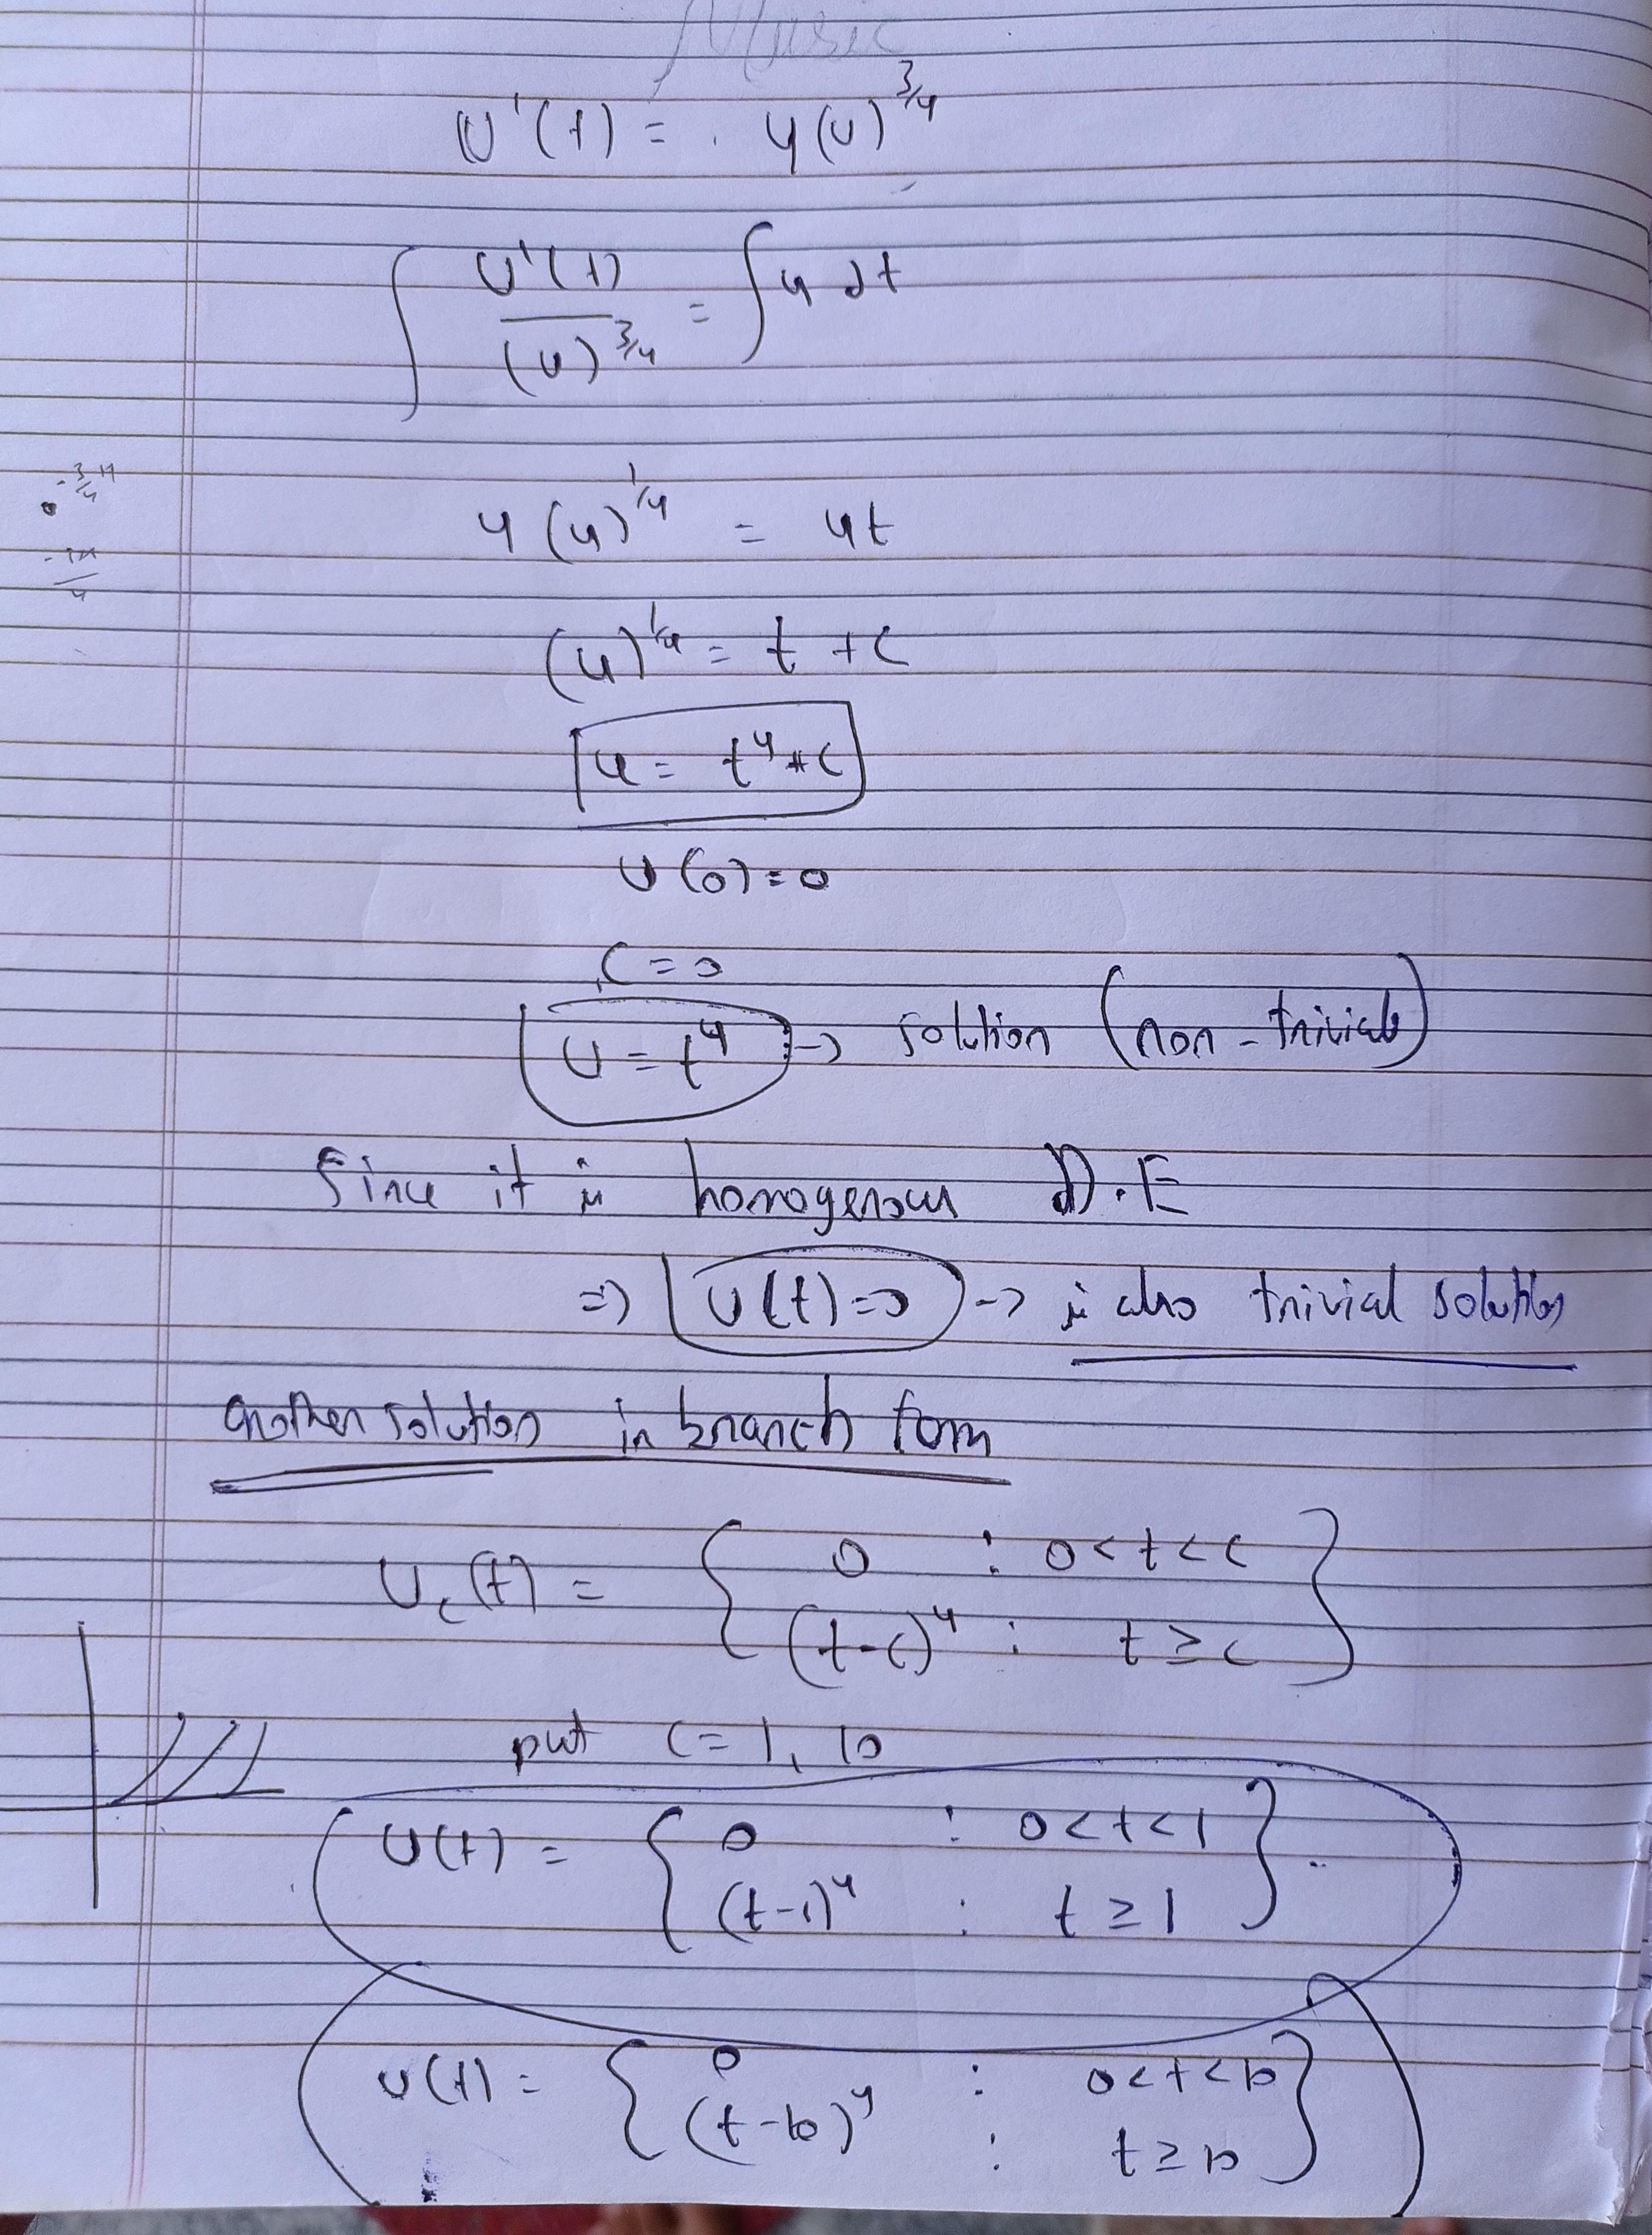 Music
U'(t) = . 4(u)^3/4
∫ U'(t)/(u)^3/4 = ∫ 4 dt
4 (u)^1/4 = 4t
(u)^1/4 = t + c
u = t^4 + c
U(0) = 0
c = 0
U = t^4 → solution (non-trivial)
Since it is homogenous D.E
⇒ U(t) = 0 → is also trivial solution
another solution in branch form
U_c(t) = { 0 : 0 < t < c
(t-c)^4 : t ≥ c }
put c = 1, 10
U(t) = { 0 : 0 < t < 1
(t-1)^4 : t ≥ 1 }
U(t) = { 0 : 0 < t < 10
(t-10)^4 : t ≥ 10 }